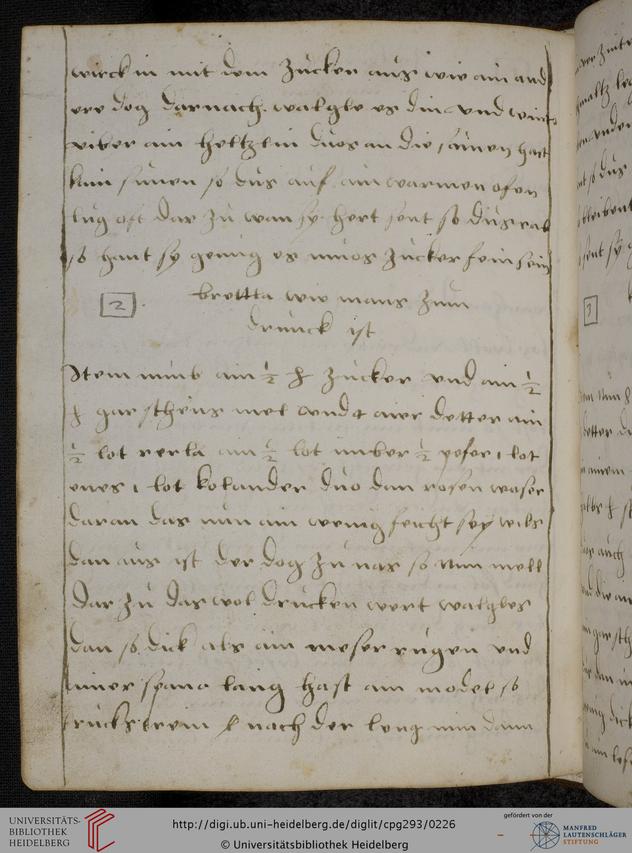 wirck in mit dem zucker aus wie ain and
ere dog darnach walgle es din vnd wint
viber ain heltzlin duos an die sunen hast
kain sunen so dus auf ain warmen ofen
lug oft dar zu wan sy hert sent so dus
so hant sy genug es muos zucker fein sein
2 brettla wie mans zum
drunck ist
Item nimb ain ½ zucker vnd ain ½
gar schens mel vnd 4 aier detter ain
½ lot rerla ain ½ lot imber ½ pefer 1 lot
enes 1 lot kolander duo dan rosen waser
daran das nun ain wenig feicht sey wils
dan aus ist der dog zu nas so nim mell
dar zu das wol drucken wert walgles
dan so dick als ain meser rugen vnd
ainer spano lang hast ain model so
nach der leng nim dann
UNIVERSITÄTS-
BIBLIOTHEK
HEIDELBERG
http://digi.ub.uni-heidelberg.de/diglit/cpg293/0226
© Universitätsbibliothek Heidelberg
gefördert von der
MANFRED
LAUTENSCHLÄGER
STIFTUNG